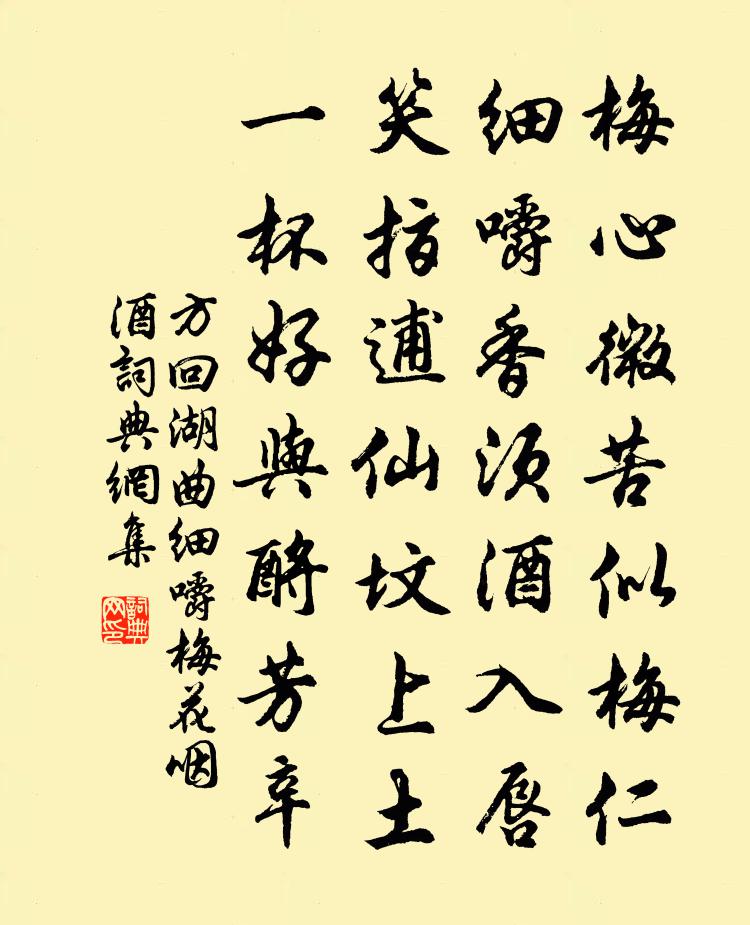 梅心微苦似梅仁
细嚼香须酒入唇
笑指逋仙坟上土
一杯好與酹芳辛
方回湖曲细嚼梅花咽
酒詞典網集
詞典
网印